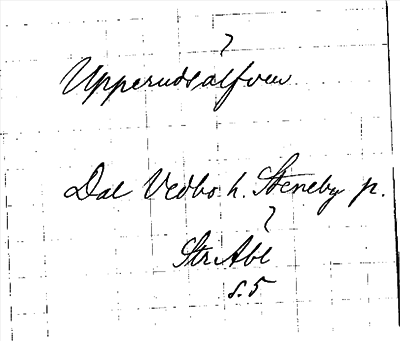 Upperudsälfven
Dal Vedbo h. Steneby p.
Str Abt
s. 5